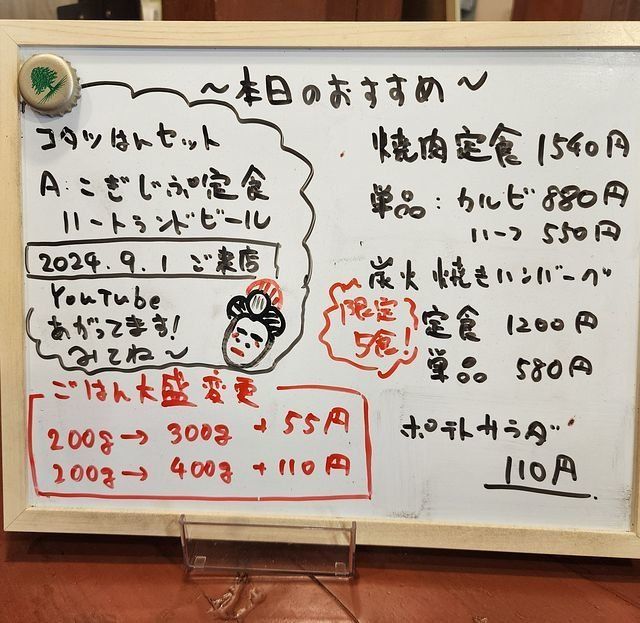 〜本日のおすすめ〜
コタツはんセット
A:こぎじぷ定食
ハートランドビール
2024.9.1 ご来店
YouTube
あがってます!
みてね〜
焼肉定食 1540円
単品:カルビ 880円
ハーフ 550円
炭火焼きハンバーグ
限定
5食!
定食 1200円
単品 580円
ごはん大盛変更
200g→300g +55円
200g→400g +110円
ポテトサラダ
110円